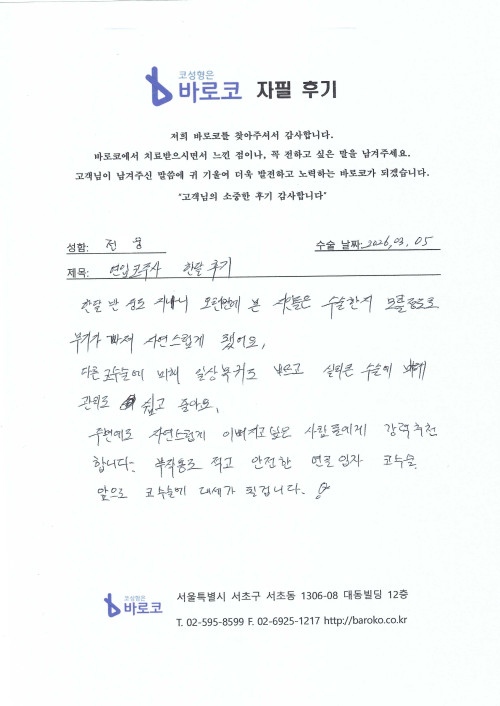 코성형은
바로코 자필 후기
저희 바로코를 찾아주셔서 감사합니다.
바로코에서 치료받으시면서 느낀 점이나, 꼭 전하고 싶은 말을 남겨주세요.
고객님이 남겨주신 말씀에 귀 기울여 더욱 발전하고 노력하는 바로코가 되겠습니다.
"고객님의 소중한 후기 감사합니다"
성함: 전 웅
수술 날짜: 2026, 03, 05
제목: 연입코주사 한달 후기
한달 반 정도 지나니 오랜만에 본 사람들은 수술한지 모를정도로
부기가 빠져 자연스럽게 됐어요,
다른 코수술에 비해 일상 복귀도 빠르고 실리콘 수술에 비해
관리도 쉽고 좋아요,
주변에도 자연스럽게 이뻐지고싶은 사람들에게 강력추천
합니다- 부작용도 적고 안전한 연골입자 코수술
앞으로 코수술에 대세가 될겁니다.
코성형은
바로코
서울특별시 서초구 서초동 1306-08 대동빌딩 12층
T. 02-595-8599 F. 02-6925-1217 http://baroko.co.kr